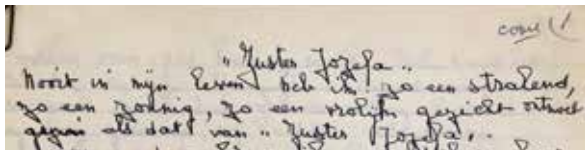 „ Zuster Jozefa „
Nooit in mijn leven heb ik zo een stralend,
zo een zonnig, zo een vrolijk gezicht ontmoet
als dat van „ Zuster Jozefa „.